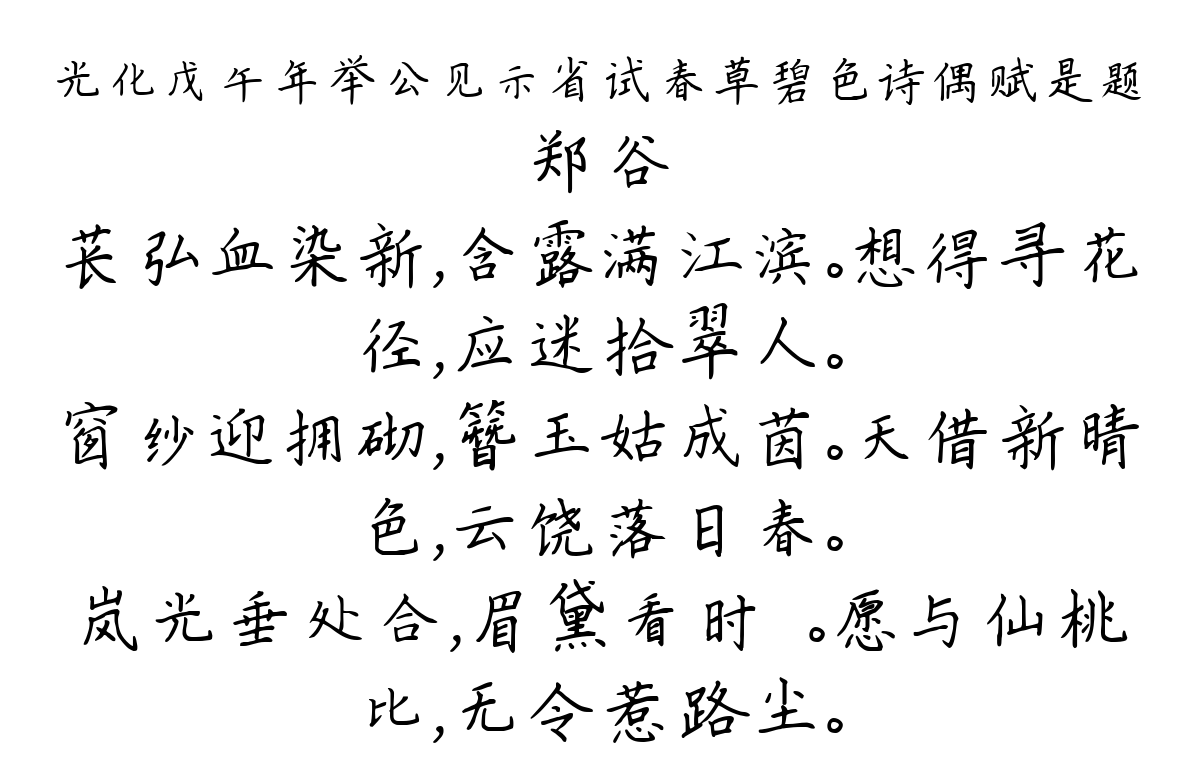 光化戊午年举公见示省试春草碧色诗偶赋是题
郑谷
苌弘血染新,含露满江滨。想得寻花
径,应迷拾翠人。
窗纱迎拥砌,簪玉姑成茵。天借新晴
色,云饶落日春。
岚光垂处合,眉黛看时 。愿与仙桃
比,无令惹路尘。